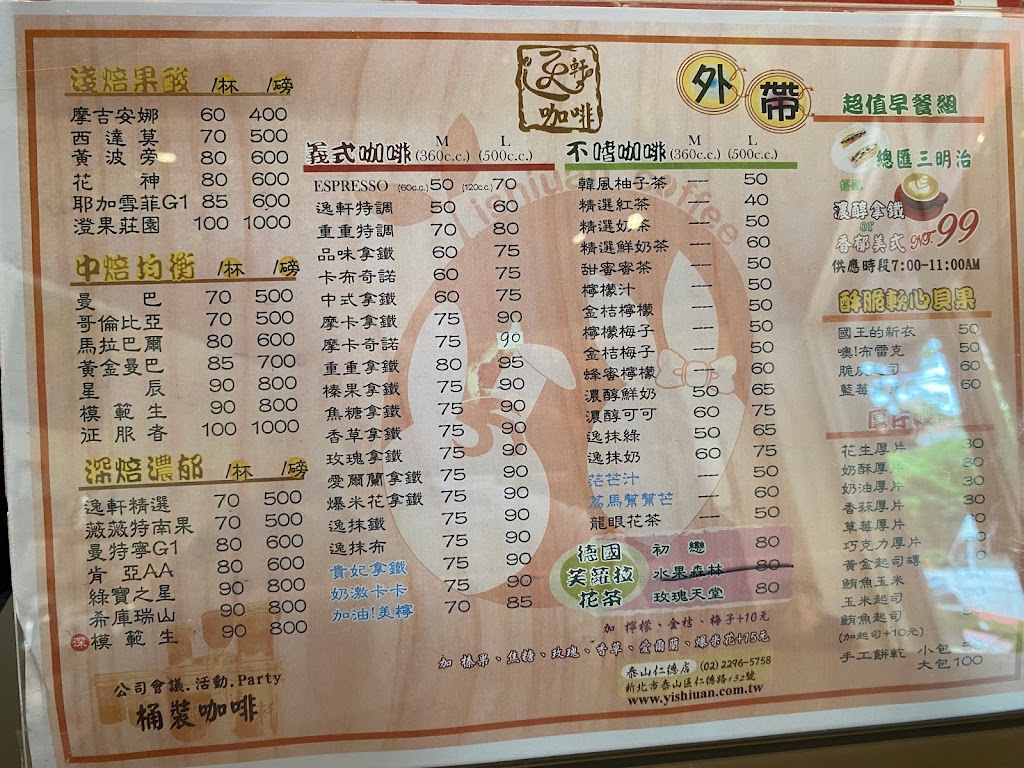 逸軒
咖啡
外帶
淺焙果酸 /杯 /磅
摩吉安娜 60 400
西達莫 70 500
黃波旁 80 600
花神 80 600
耶加雪菲G1 85 600
澄果莊園 100 1000
中焙均衡 /杯 /磅
曼巴 70 500
哥倫比亞 70 500
馬拉巴爾 80 600
黃金曼巴 85 700
星辰 90 800
模範生 90 800
征服者 100 1000
深焙濃郁 /杯 /磅
逸軒精選 70 500
薇薇特南果 70 500
曼特寧G1 80 600
肯亞AA 80 600
綠寶之星 90 800
希庫瑞山 90 800
深 模範生 90 800
公司會議.活動.Party
桶裝咖啡
義式咖啡 M (360c.c.) L (500c.c.)
ESPRESSO (60c.c.) 50 (120c.c.) 70
逸軒特調 50 60
重重特調 70 80
品味拿鐵 60 75
卡布奇諾 60 75
中式拿鐵 60 75
摩卡拿鐵 75 90
摩卡奇諾 75 90
重重拿鐵 80 95
榛果拿鐵 75 90
焦糖拿鐵 75 90
香草拿鐵 75 90
玫瑰拿鐵 75 90
愛爾蘭拿鐵 75 90
爆米花拿鐵 75 90
逸抹鐵 75 90
逸抹布 75 90
貴妃拿鐵 75 90
奶激卡卡 75 90
加油!美檸 70 85
不嗜咖啡 M (360c.c.) L (500c.c.)
韓風柚子茶 — 50
精選紅茶 — 40
精選奶茶 — 50
精選鮮奶茶 — 60
甜蜜蜜茶 — 50
檸檬汁 — 50
金桔檸檬 — 50
檸檬梅子 — 50
金桔梅子 — 50
蜂蜜檸檬 — 60
濃醇鮮奶 50 65
濃醇可可 60 75
逸抹綠 50 65
逸抹奶 60 75
茫芒汁 — 50
荔馬幫幫芒 — 60
龍眼花茶 — 50
德國芙蘿拉花茶
初戀 80
水果森林 80
玫瑰天堂 80
加 檸檬、金桔、梅子+10元
加 榛果、焦糖、玫瑰、香草、愛爾蘭、爆米花+15元
泰山仁德店 (02)2296-5758
新北市泰山區仁德路132號
www.yishiuan.com.tw
超值早餐組
總匯三明治
濃醇拿鐵
or
香郁美式 NT.99
供應時段7:00-11:00AM
酥脆軟心貝果
國王的新衣 50
噢!布雷克 50
60
藍莓 60
花生厚片 30
奶酥厚片 30
奶油厚片 30
香蒜厚片 30
草莓厚片 30
巧克力厚片
黃金起司磚
鮪魚玉米
玉米起司
鮪魚起司
(加起司+10元)
手工餅乾 小包 50
大包 100